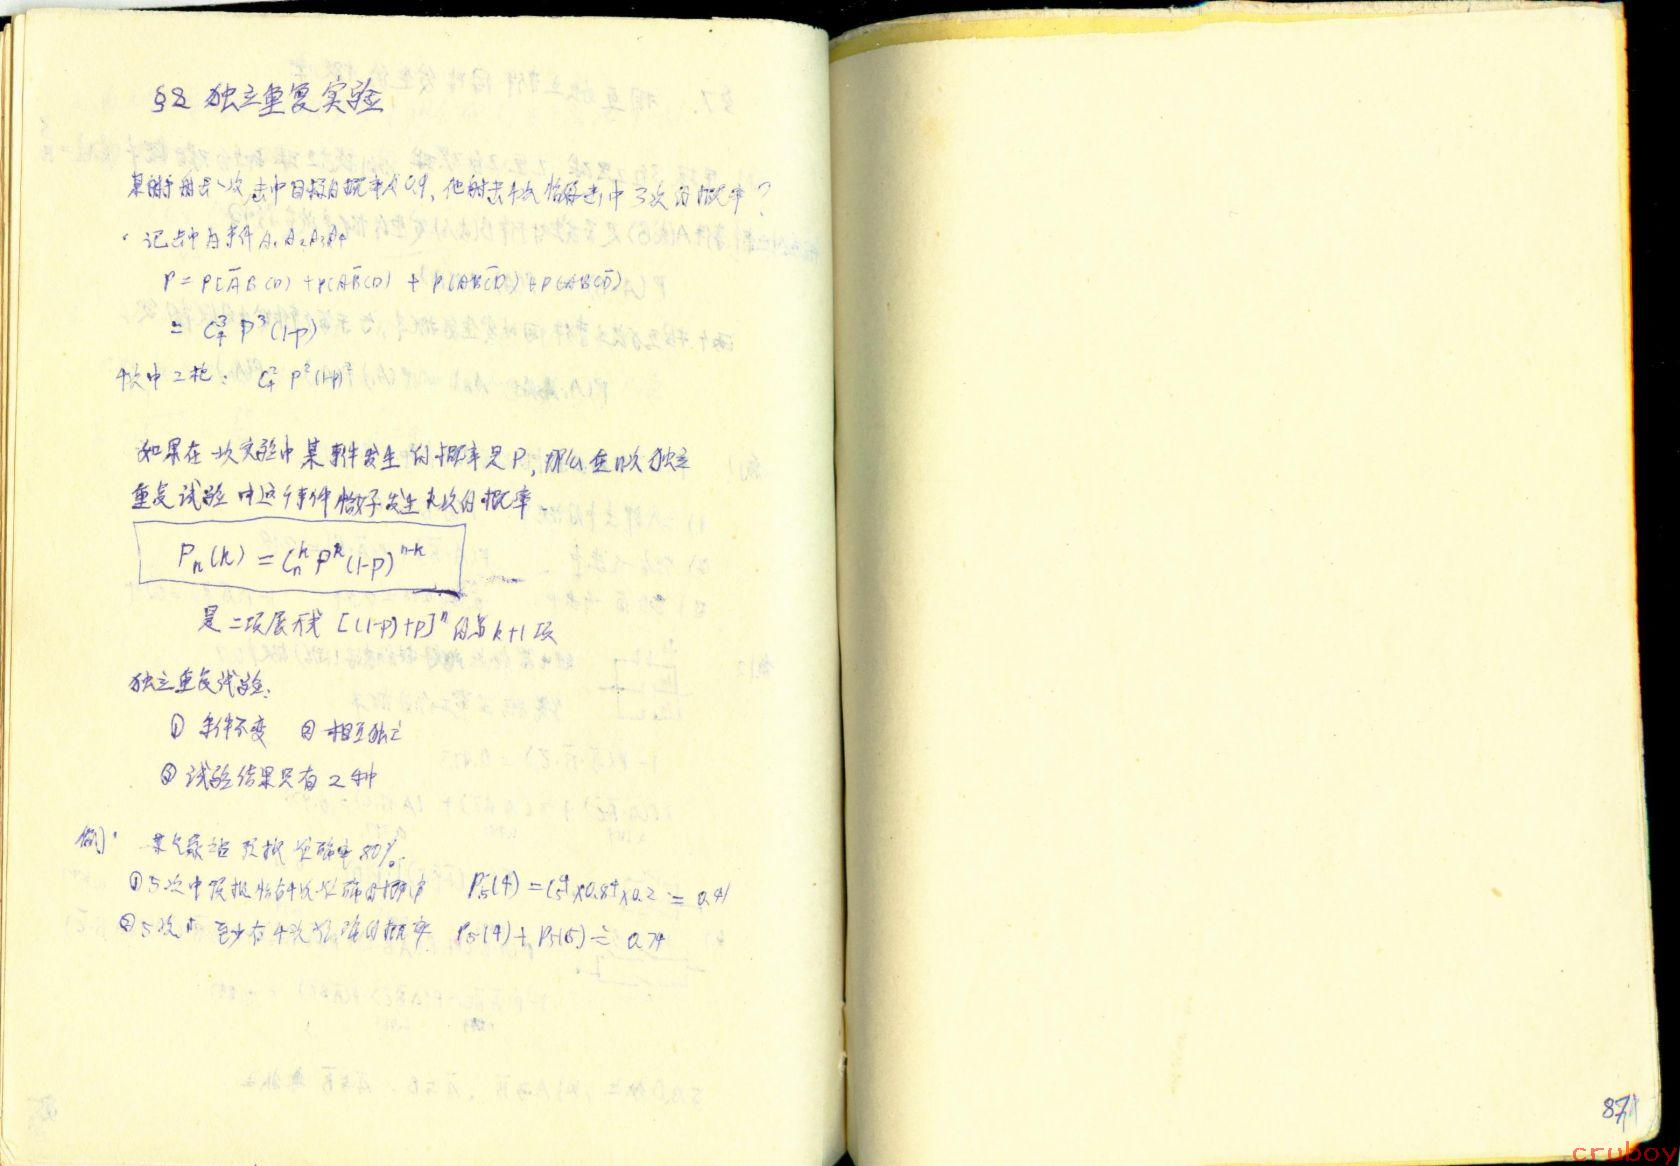 §8 独立重复实验
某射手射击一次击中目标的概率为0.9, 他射击4次恰好击中3次的概率?
记击中为事件A₁A₂A₃A₄
P = P(A̅BCD) + P(AB̅CD) + P(ABC̅D) + P(ABCD̅)
= C₄³ P³(1-P)
4次中2枪: C₄² P²(1-P)²
如果在一次实验中某事件发生的概率是P, 那么在n次独立
重复试验中这个事件恰好发生k次的概率
Pₙ(k) = Cₙᵏ Pᵏ(1-P)ⁿ⁻ᵏ
是二项展开式 [(1-P)+P]ⁿ 的第k+1项
独立重复试验:
① 条件不变 ② 相互独立
③ 试验结果只有2种
例: 某气象站预报准确率80%.
① 5次中预报恰有4次准确的概率 P₅(4) = C₅⁴×0.8⁴×0.2 ≐ 0.41
② 5次中至少有4次准确的概率 P₅(4) + P₅(5) ≐ 0.74
87
cruboy